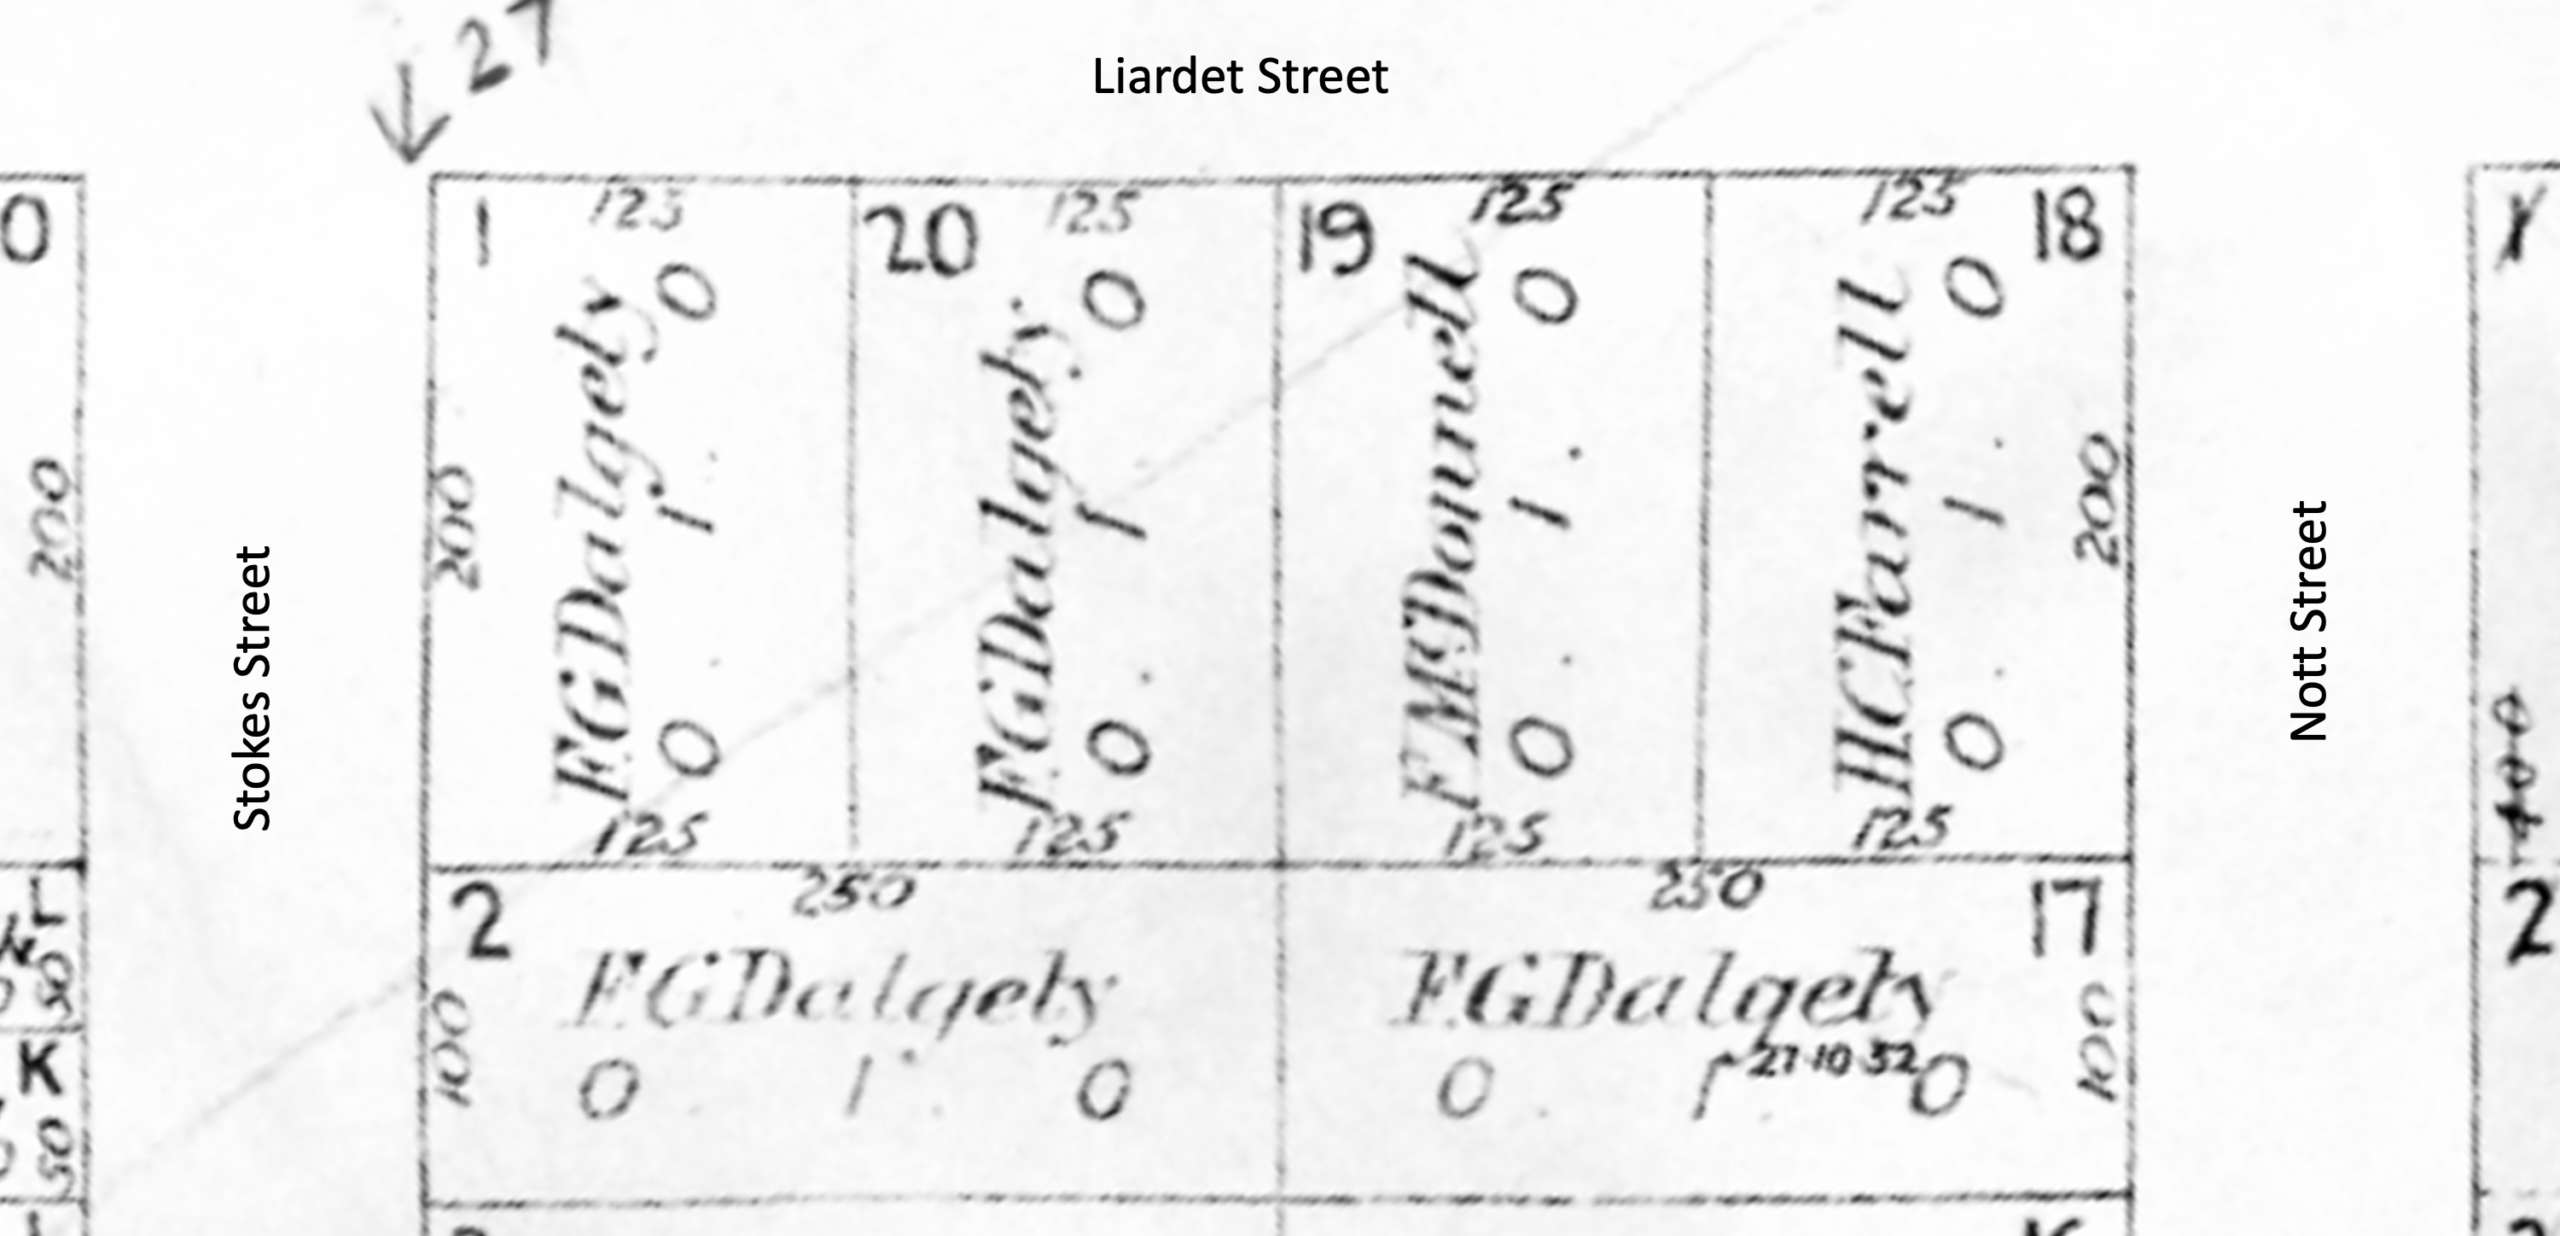 27
Liardet Street
0
200
Stokes Street
1
125
F.G.Dalgety
0 . 1 . 0
200
125
20
125
F.G.Dalgety
0 . 1 . 0
125
19
125
F McDonnell
0 . 1 . 0
125
18
125
H.C.Farrell
0 . 1 . 0
200
125
Nott Street
2
250
F.G.Dalgety
0 . 1 . 0
100
17
250
F.G.Dalgety
0 . 1 . 0
27·10·52
100
50
K
50
2